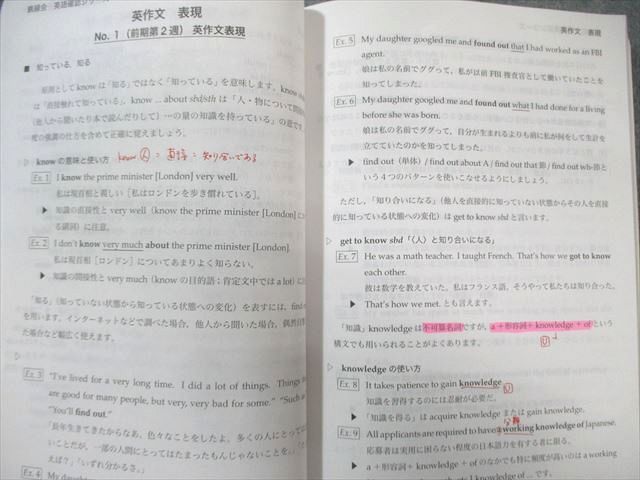 鉄緑会 英語確認シリーズ
英作文 表現
No. 1 (前期第2週) 英作文表現
■ 知っている，知る
原則として know は「知る」ではなく「知っている」を意味します。know
は「直接触れて知っている」，know ... about sbd/sth は「人・物について間
(他人から聞いたり本で読んだりして) …の量の知識を持っている」の意です。
度の強調の仕方を含めて正確に覚えましょう。
▷ know の意味と使い方 know 人 = 直接 = 知り合いである
Ex. 1 I know the prime minister [London] very well.
私は現首相と親しい［私はロンドンを歩き慣れている］。
▶ 知識の直接性と very well (know the prime minister [London] に
る語句) に注意。
Ex. 2 I don't know very much about the prime minister [London].
私は現首相［ロンドン］についてあまりよく知らない。
▶ 知識の間接性と very much (know の目的語；肯定文中では a lot) に
「知る」(知っていない状態から知っている状態への変化) を表すには，find
を用います。インターネットなどで調べた場合，他人から聞いた場合，偶然
た場合など幅広く使えます。
▷
Ex. 3 "I've lived for a very long time. I did a lot of things. Things
are good for many people, but very, very bad for some." "Such as
"You'll find out."
「長年生きてきたからなあ，色々なことをしたよ。多くの人にとって
いことだが，一部の人間にとってはたまったもんじゃないことを。」
えば？」「いずれ分かるさ。」
Ex. 4
英作文 表現
Ex. 5 My daughter googled me and found out that I had worked as an FBI
agent.
娘は私の名前でググって，私が以前 FBI 捜査官として働いていたことを
知ってしまった。
Ex. 6 My daughter googled me and found out what I had done for a living
before she was born.
娘は私の名前でググって，自分が生まれるよりも前に私が何をして生計を
立てていたのかを知ってしまった。
▶ find out (単体) / find out about A / find out that 節 / find out wh-節と
いう4つのパターンを使いこなせるようにしましょう。
ただし，「知り合いになる」(他人を直接的に知っていない状態からその人を直接
的に知っている状態への変化) は get to know sbd と言います。
▷ get to know sbd「(人) と知り合いになる」
Ex. 7 He was a math teacher. I taught French. That's how we got to know
each other.
彼は数学を教えていた。私はフランス語。そうやって私たちは知り合った。
▶ That's how we met. とも言えます。
「知識」knowledge は不可算名詞ですが，a ＋形容詞＋ knowledge ＋ of という
構文でも用いられることがよくあります。
U
▷ knowledge の使い方
Ex. 8 It takes patience to gain knowledge.
U
知識を習得するのには忍耐が必要だ。
▶ 「知識を得る」は acquire knowledge または gain knowledge.
Ex. 9 All applicants are required to have a working knowledge of Japanese.
応募者は実用に困らない程度の日本語力を有する者に限る。
▶ a ＋形容詞＋ knowledge ＋ of のなかでも特に頻度が高いのは a working